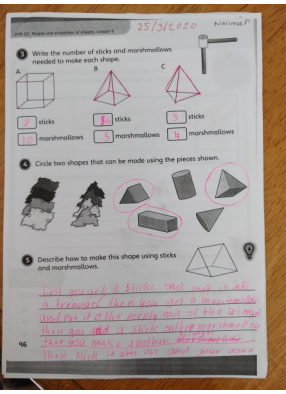 Unit 12: Shapes and properties of shapes, Lesson 9
25/3/2020
3 Write the number of sticks and marshmallows
needed to make each shape.
A B C
8 sticks
8 sticks
5 sticks
10 marshmallows
5 marshmallows
4 marshmallows
4 Circle two shapes that can be made using the pieces shown.
5 Describe how to make this shape using sticks
and marshmallows.
First you get 3 sticks and make it into
a treangel then you get a marshmallow
and Put it
then you add a stick
then you make another
then stick
96